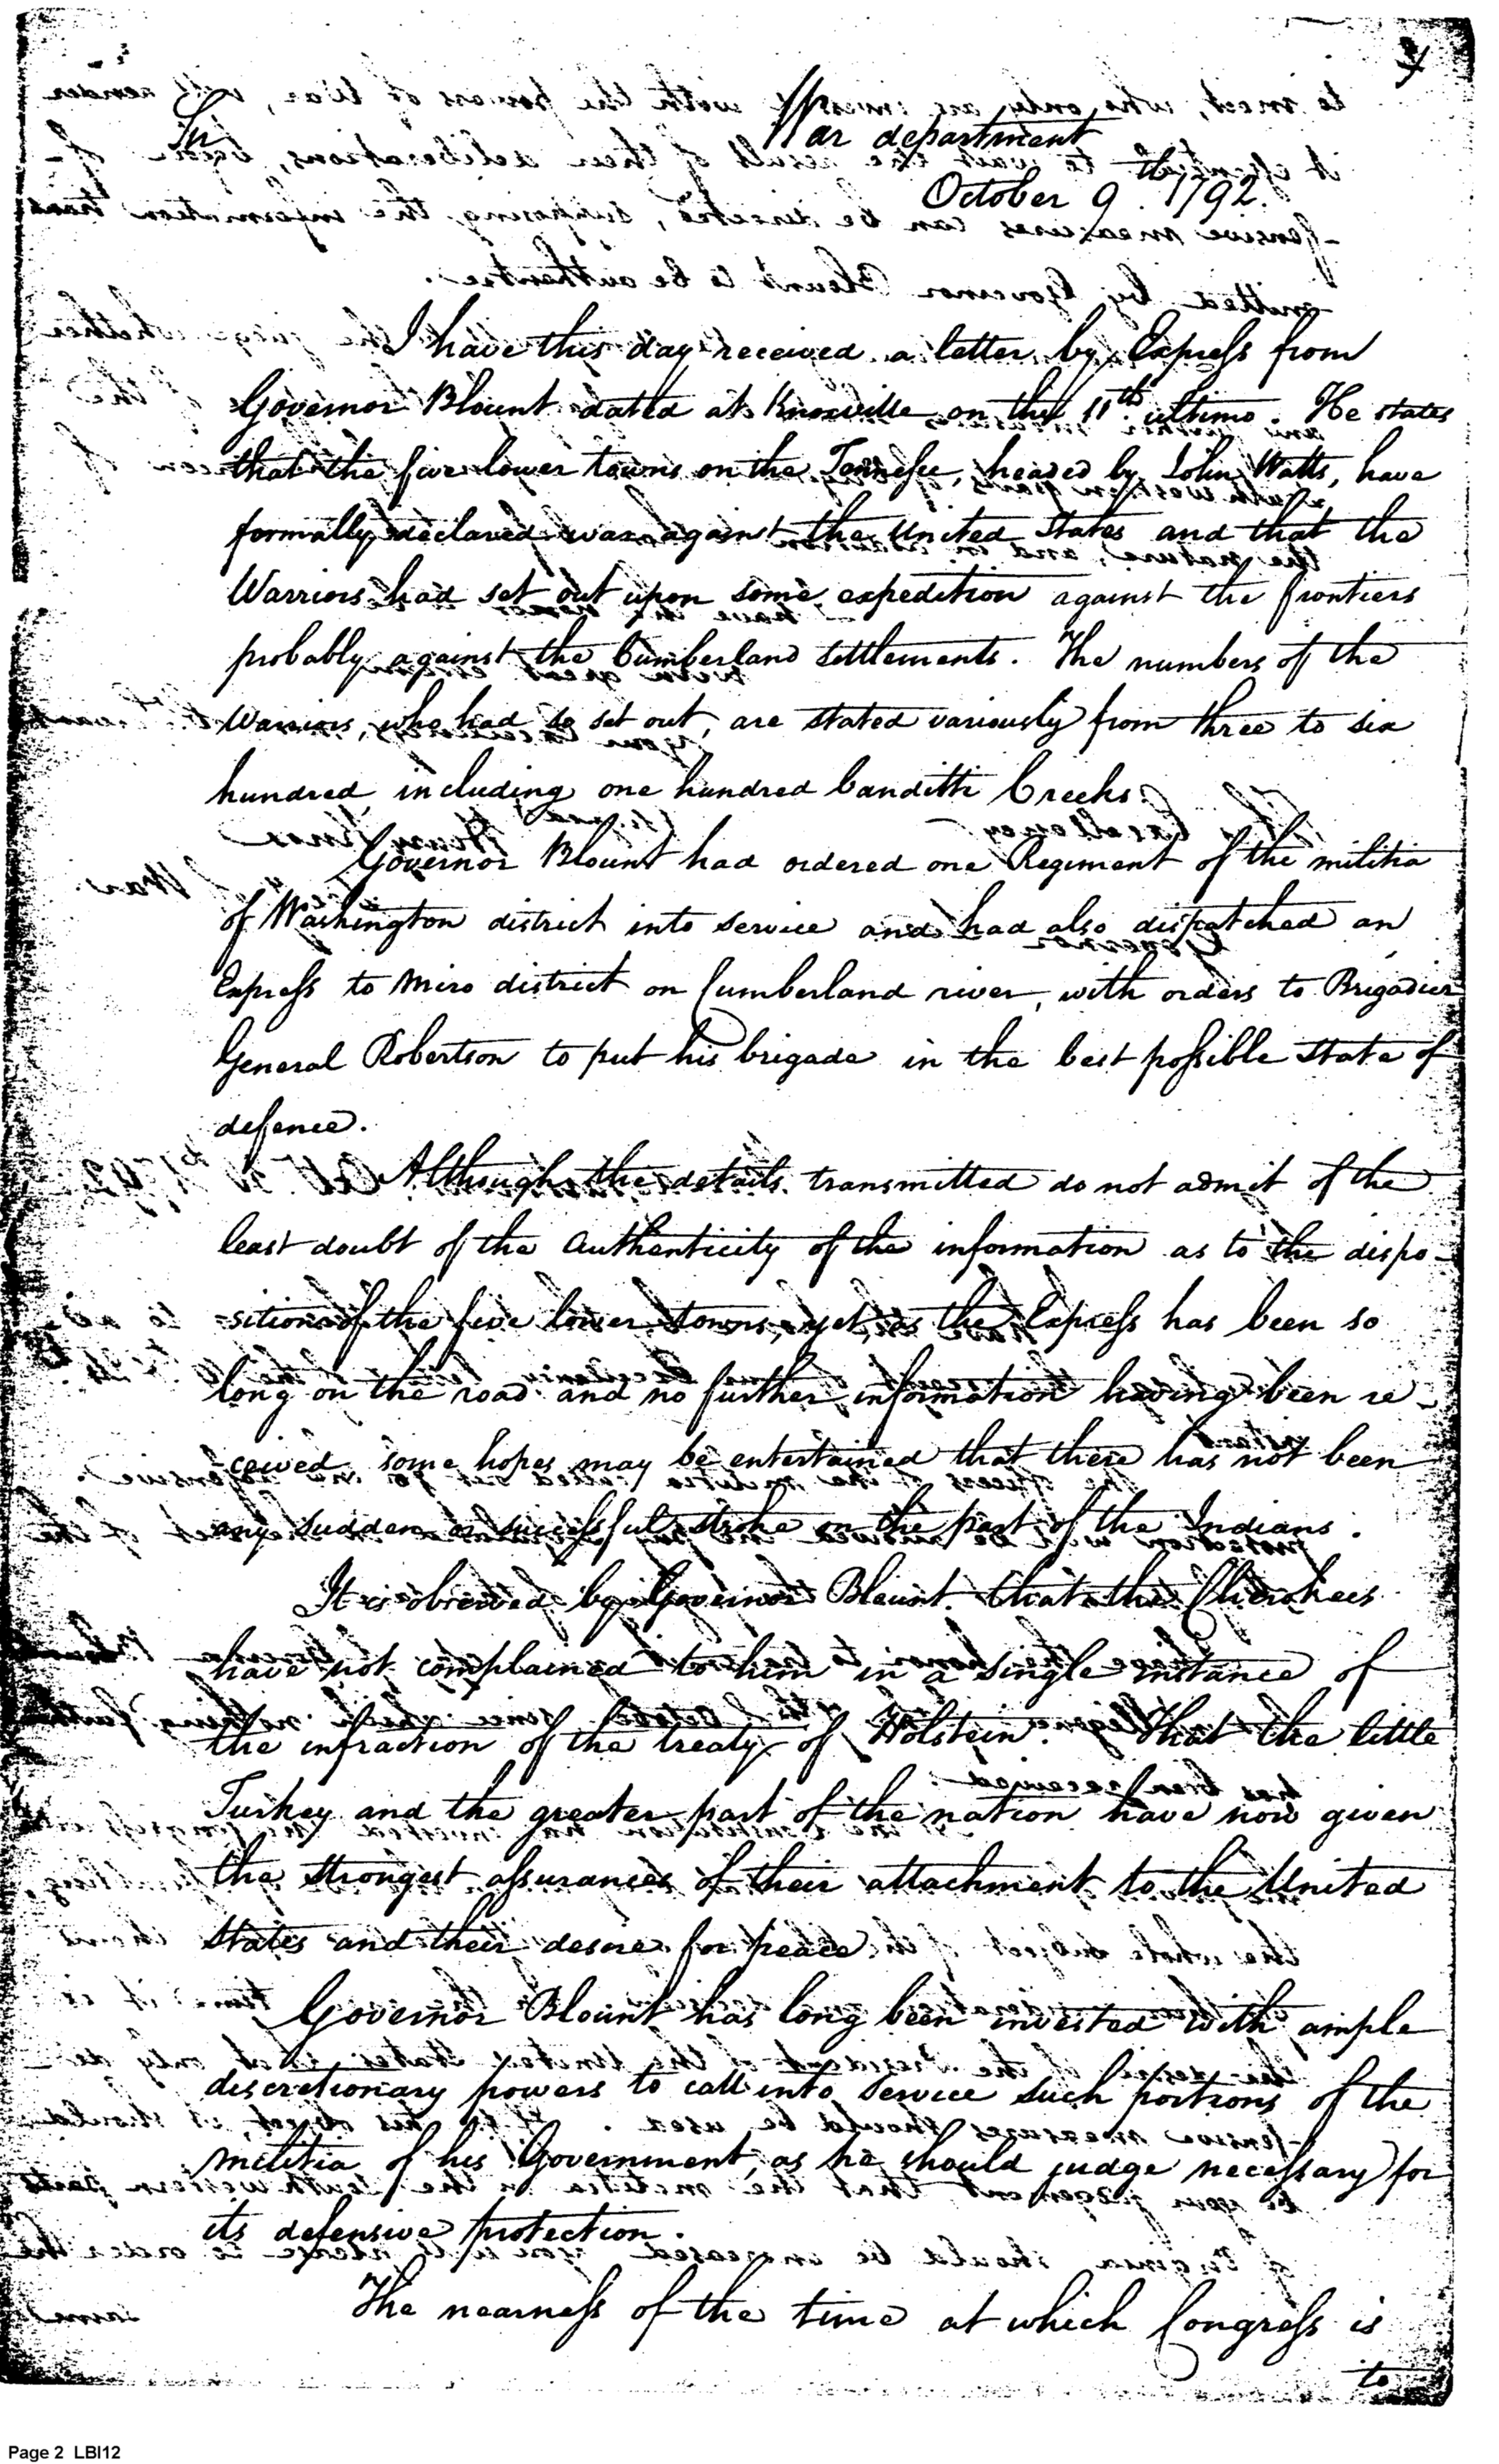 War department
Sir
October 9th. 1792.
I have this day received a letter by Express from
Governor Blount dated at Knoxville on the 11th. ultimo. He states
that the five lower towns on the Tennessee, headed by John Watts, have
formally declared war against the United States and that the
Warriors had set out upon some expedition against the frontiers
probably against the Cumberland settlements. The numbers of the
Warriors, who had so set out, are stated variously from three to six
hundred, including one hundred banditti Creeks.
Governor Blount had ordered one Regiment of the militia
of Washington district into service and had also dispatched an
Express to Miro district on Cumberland river, with orders to Brigadier
General Robertson to put his brigade in the best possible state of
defence.
Although the details transmitted do not admit of the
least doubt of the Authenticity of the information as to the dispo-
sition of the five lower towns, yet, as the Express has been so
long on the road and no further information having been re-
ceived, some hopes may be entertained that there has not been
any sudden or successful stroke on the part of the Indians.
It is observed by Governor Blount that the Cherokees
have not complained to him in a single instance of
the infraction of the treaty of Holstein. That the little
Turkey and the greater part of the nation have now given
the strongest assurances of their attachment to the United
States and their desire for peace.
Governor Blount has long been invested with ample
discretionary powers to call into service such portions of the
militia of his Government, as he should judge necessary for
its defensive protection.
The nearness of the time at which Congress is
to
Page 2 LBI12